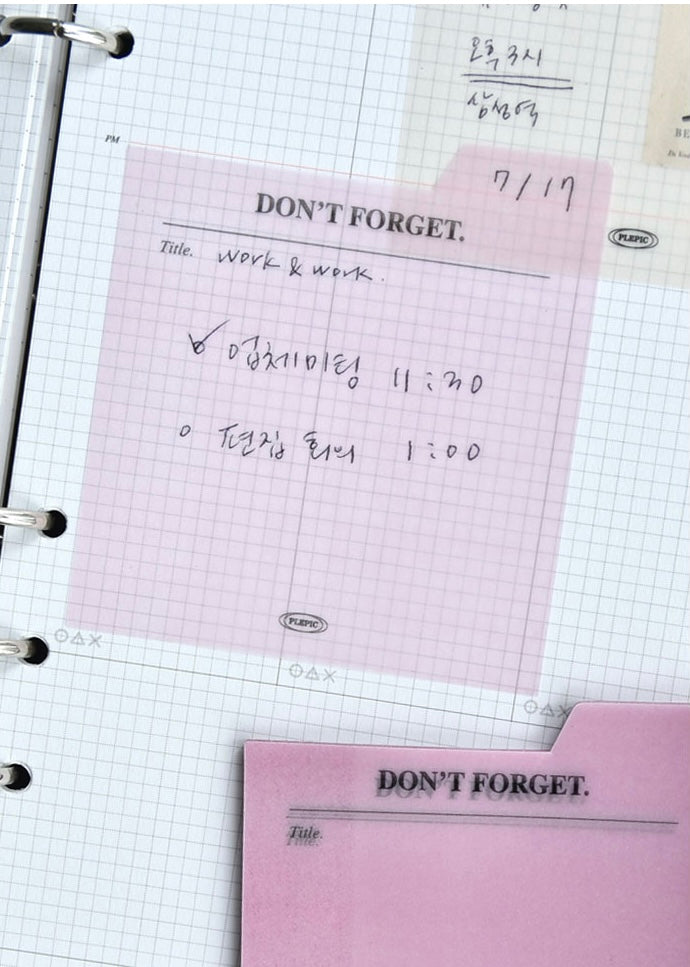 오후 3시
삼성역
BE
PM
7/17
DON'T FORGET.
PLEPIC
Title. work & work.
업체미팅 11:30
편집 회의 1:00
PLEPIC
DON'T FORGET.
Title.